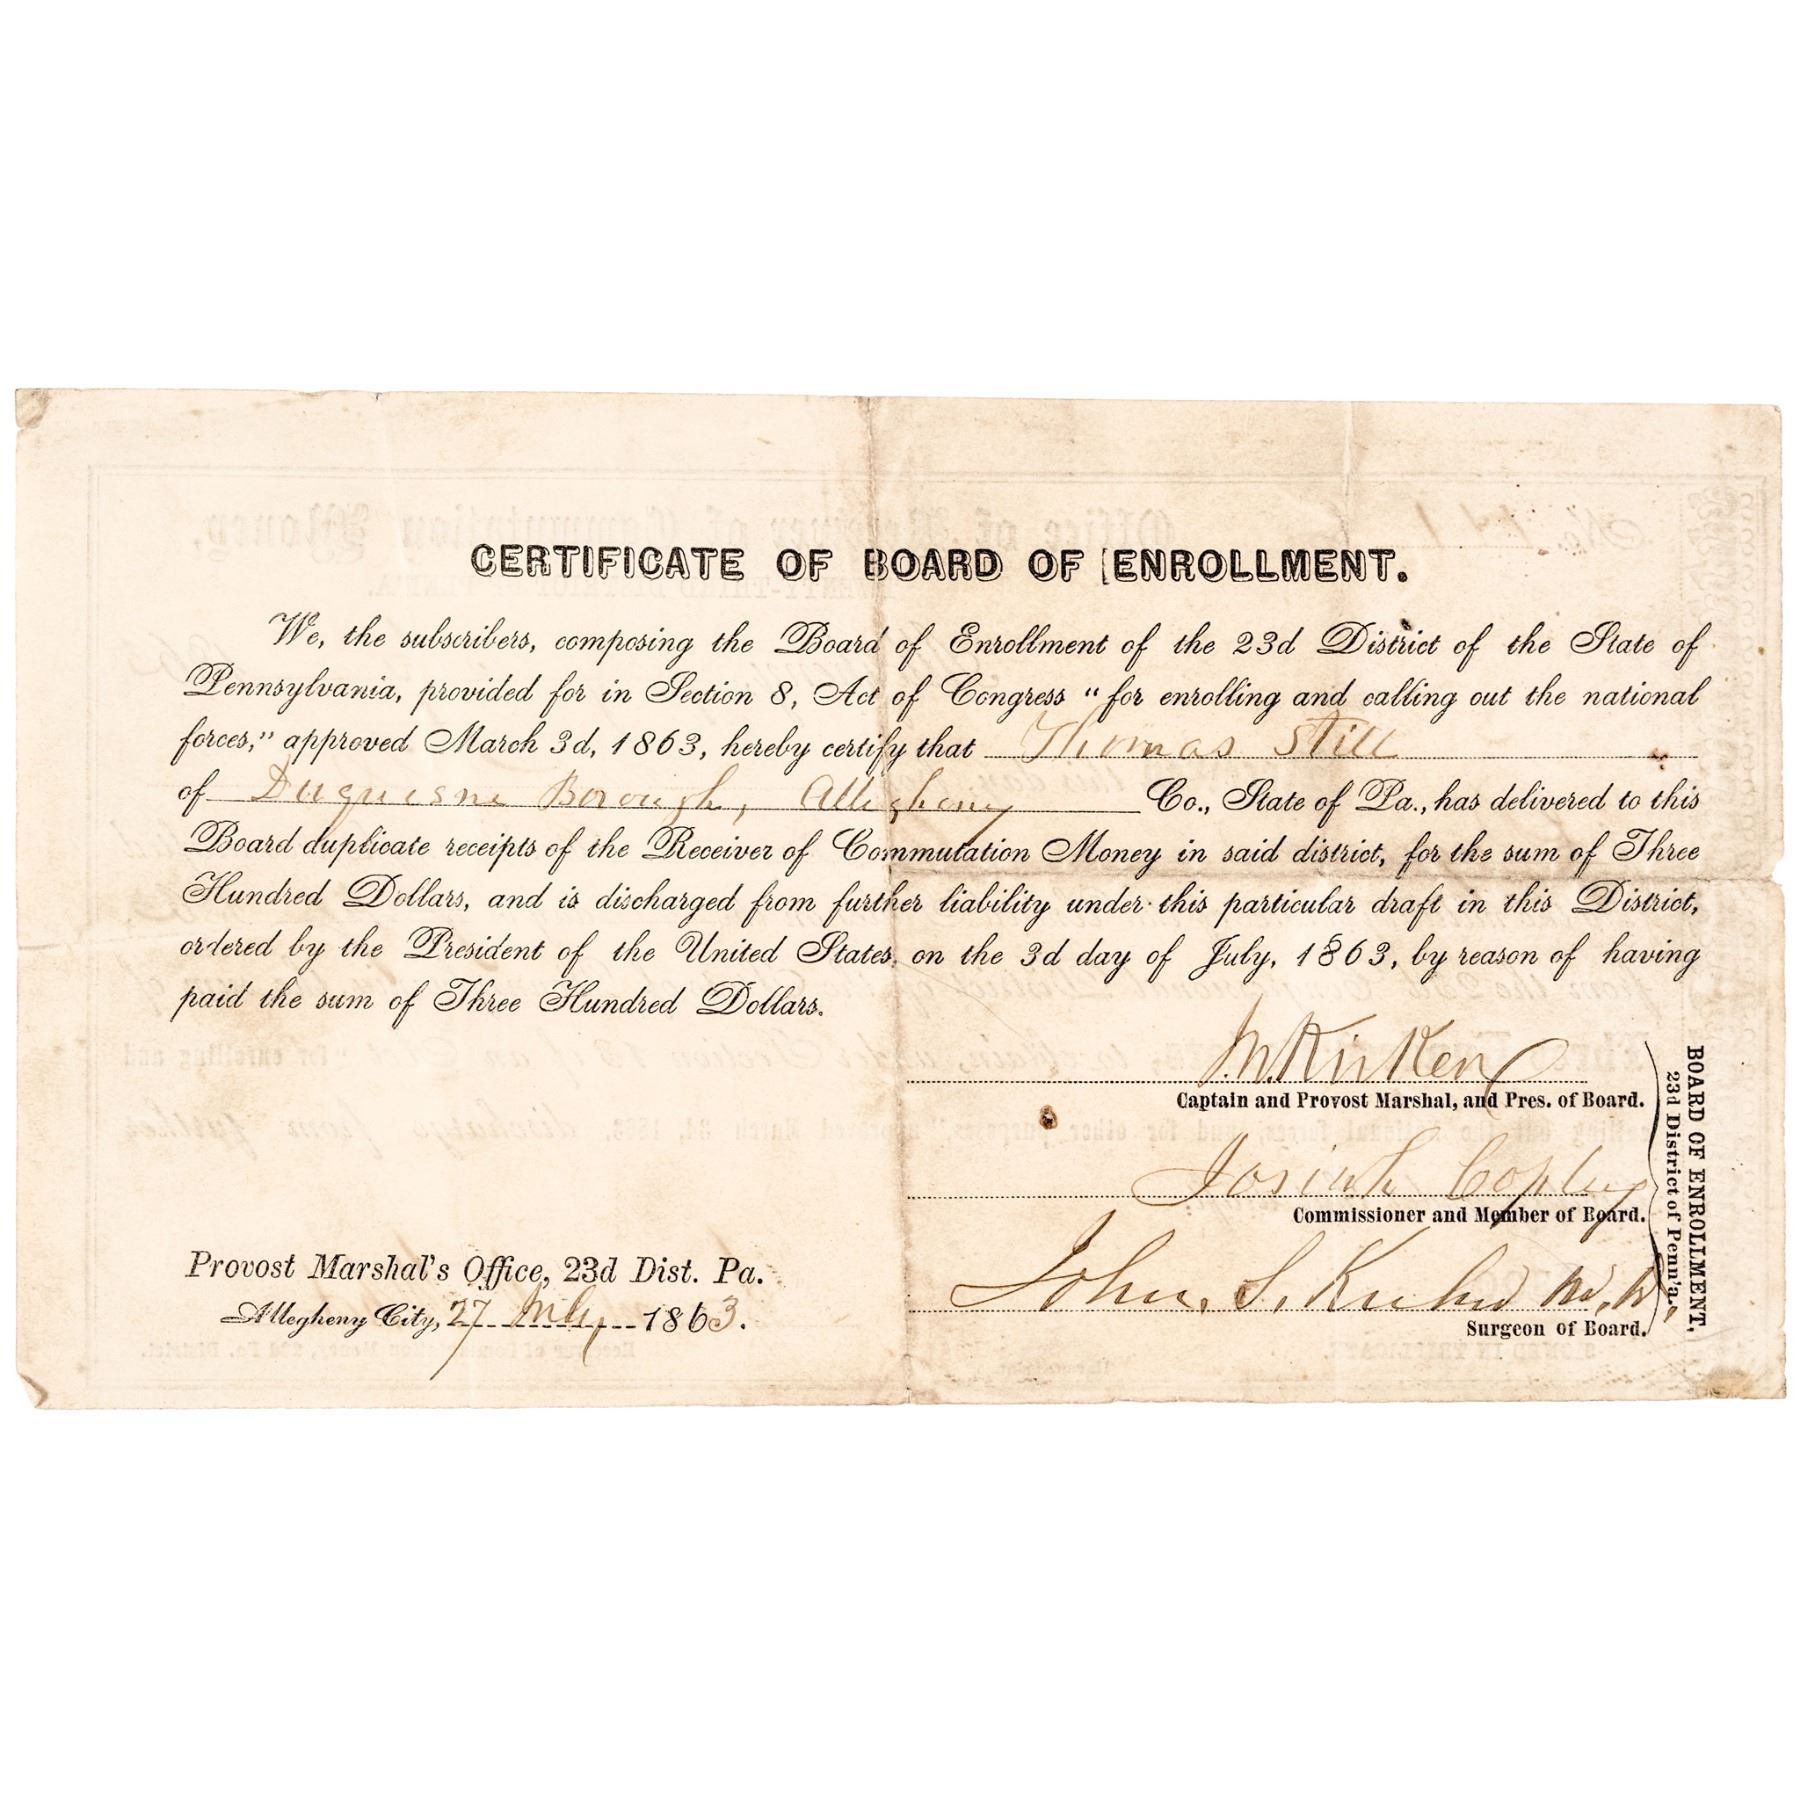 CERTIFICATE OF BOARD OF ENROLLMENT.
We, the subscribers, composing the Board of Enrollment of the 23d District of the State of
Pennsylvania, provided for in Section 8, Act of Congress “for enrolling and calling out the national
forces,” approved March 3d, 1863, hereby certify that Thomas Still
of Duquesne Borough, Allegheny Co., State of Pa., has delivered to this
Board duplicate receipts of the Receiver of Commutation Money in said district, for the sum of Three
Hundred Dollars, and is discharged from further liability under this particular draft in this District,
ordered by the President of the United States, on the 3d day of July, 1863, by reason of having
paid the sum of Three Hundred Dollars.
J. W. Kirker
Captain and Provost Marshal, and Pres. of Board.
Josiah Copley
Commissioner and Member of Board.
John S. Kuhn M.D.
Surgeon of Board.
BOARD OF ENROLLMENT,
23d District of Penn'a.
Provost Marshal's Office, 23d Dist. Pa.
Allegheny City, 27 July 1863.